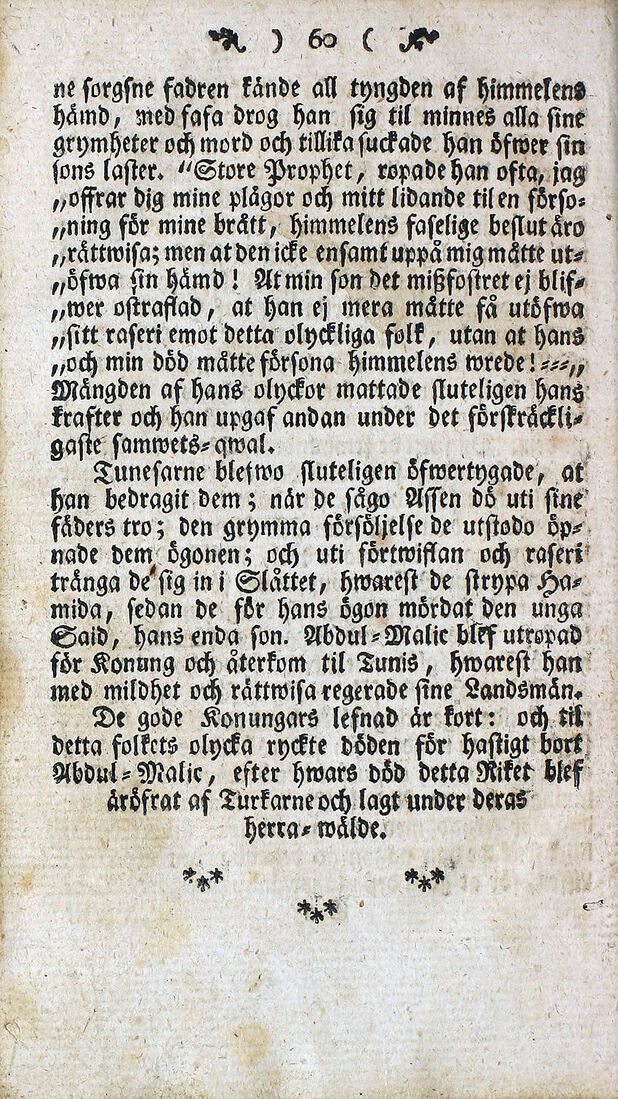 ) 60 (
ne sorgsne fadren kände all tyngden af himmelens
hämd, med fasa drog han sig til minnes alla sine
grymheter och mord och tillika suckade han öfwer sin
sons laster. "Store Prophet, ropade han ofta, jag
„offrar dig mine plågor och mitt lidande til en förso-
„ning för mine brått, himmelens faselige beslut äro
„rättwisa; men at den icke ensamt uppå mig måtte ut-
„öfwa sin hämd! At min son det mißfostret ej blif-
„wer ostraffad, at han ej mera måtte få utöfwa
„sitt raseri emot detta olyckliga folk, utan at hans
„och min död måtte försona himmelens wrede!---„
Mängden af hans olyckor mattade sluteligen hans
krafter och han upgaf andan under det förskräckli-
gaste samwets-qwal.
Tunesarne blefwo sluteligen öfwertygade, at
han bedragit dem; när de sågo Assen dö uti sine
fäders tro; den grymma försöljelse de utstodo öp-
nade dem ögonen; och uti förtwiflan och raseri
tränga de sig in i Slåttet, hwarest de strypa Ha-
mida, sedan de för hans ögon mördat den unga
Said, hans enda son. Abdul-Malic blef utropad
för Konung och återkom til Tunis, hwarest han
med mildhet och rättwisa regerade sine Landsmän.
De gode Konungars lefnad är kort: och til
detta folkets olycka ryckte döden för hastigt bort
Abdul-Malic, efter hwars död detta Riket blef
äröfrat af Turkarne och lagt under deras
herra-wälde.